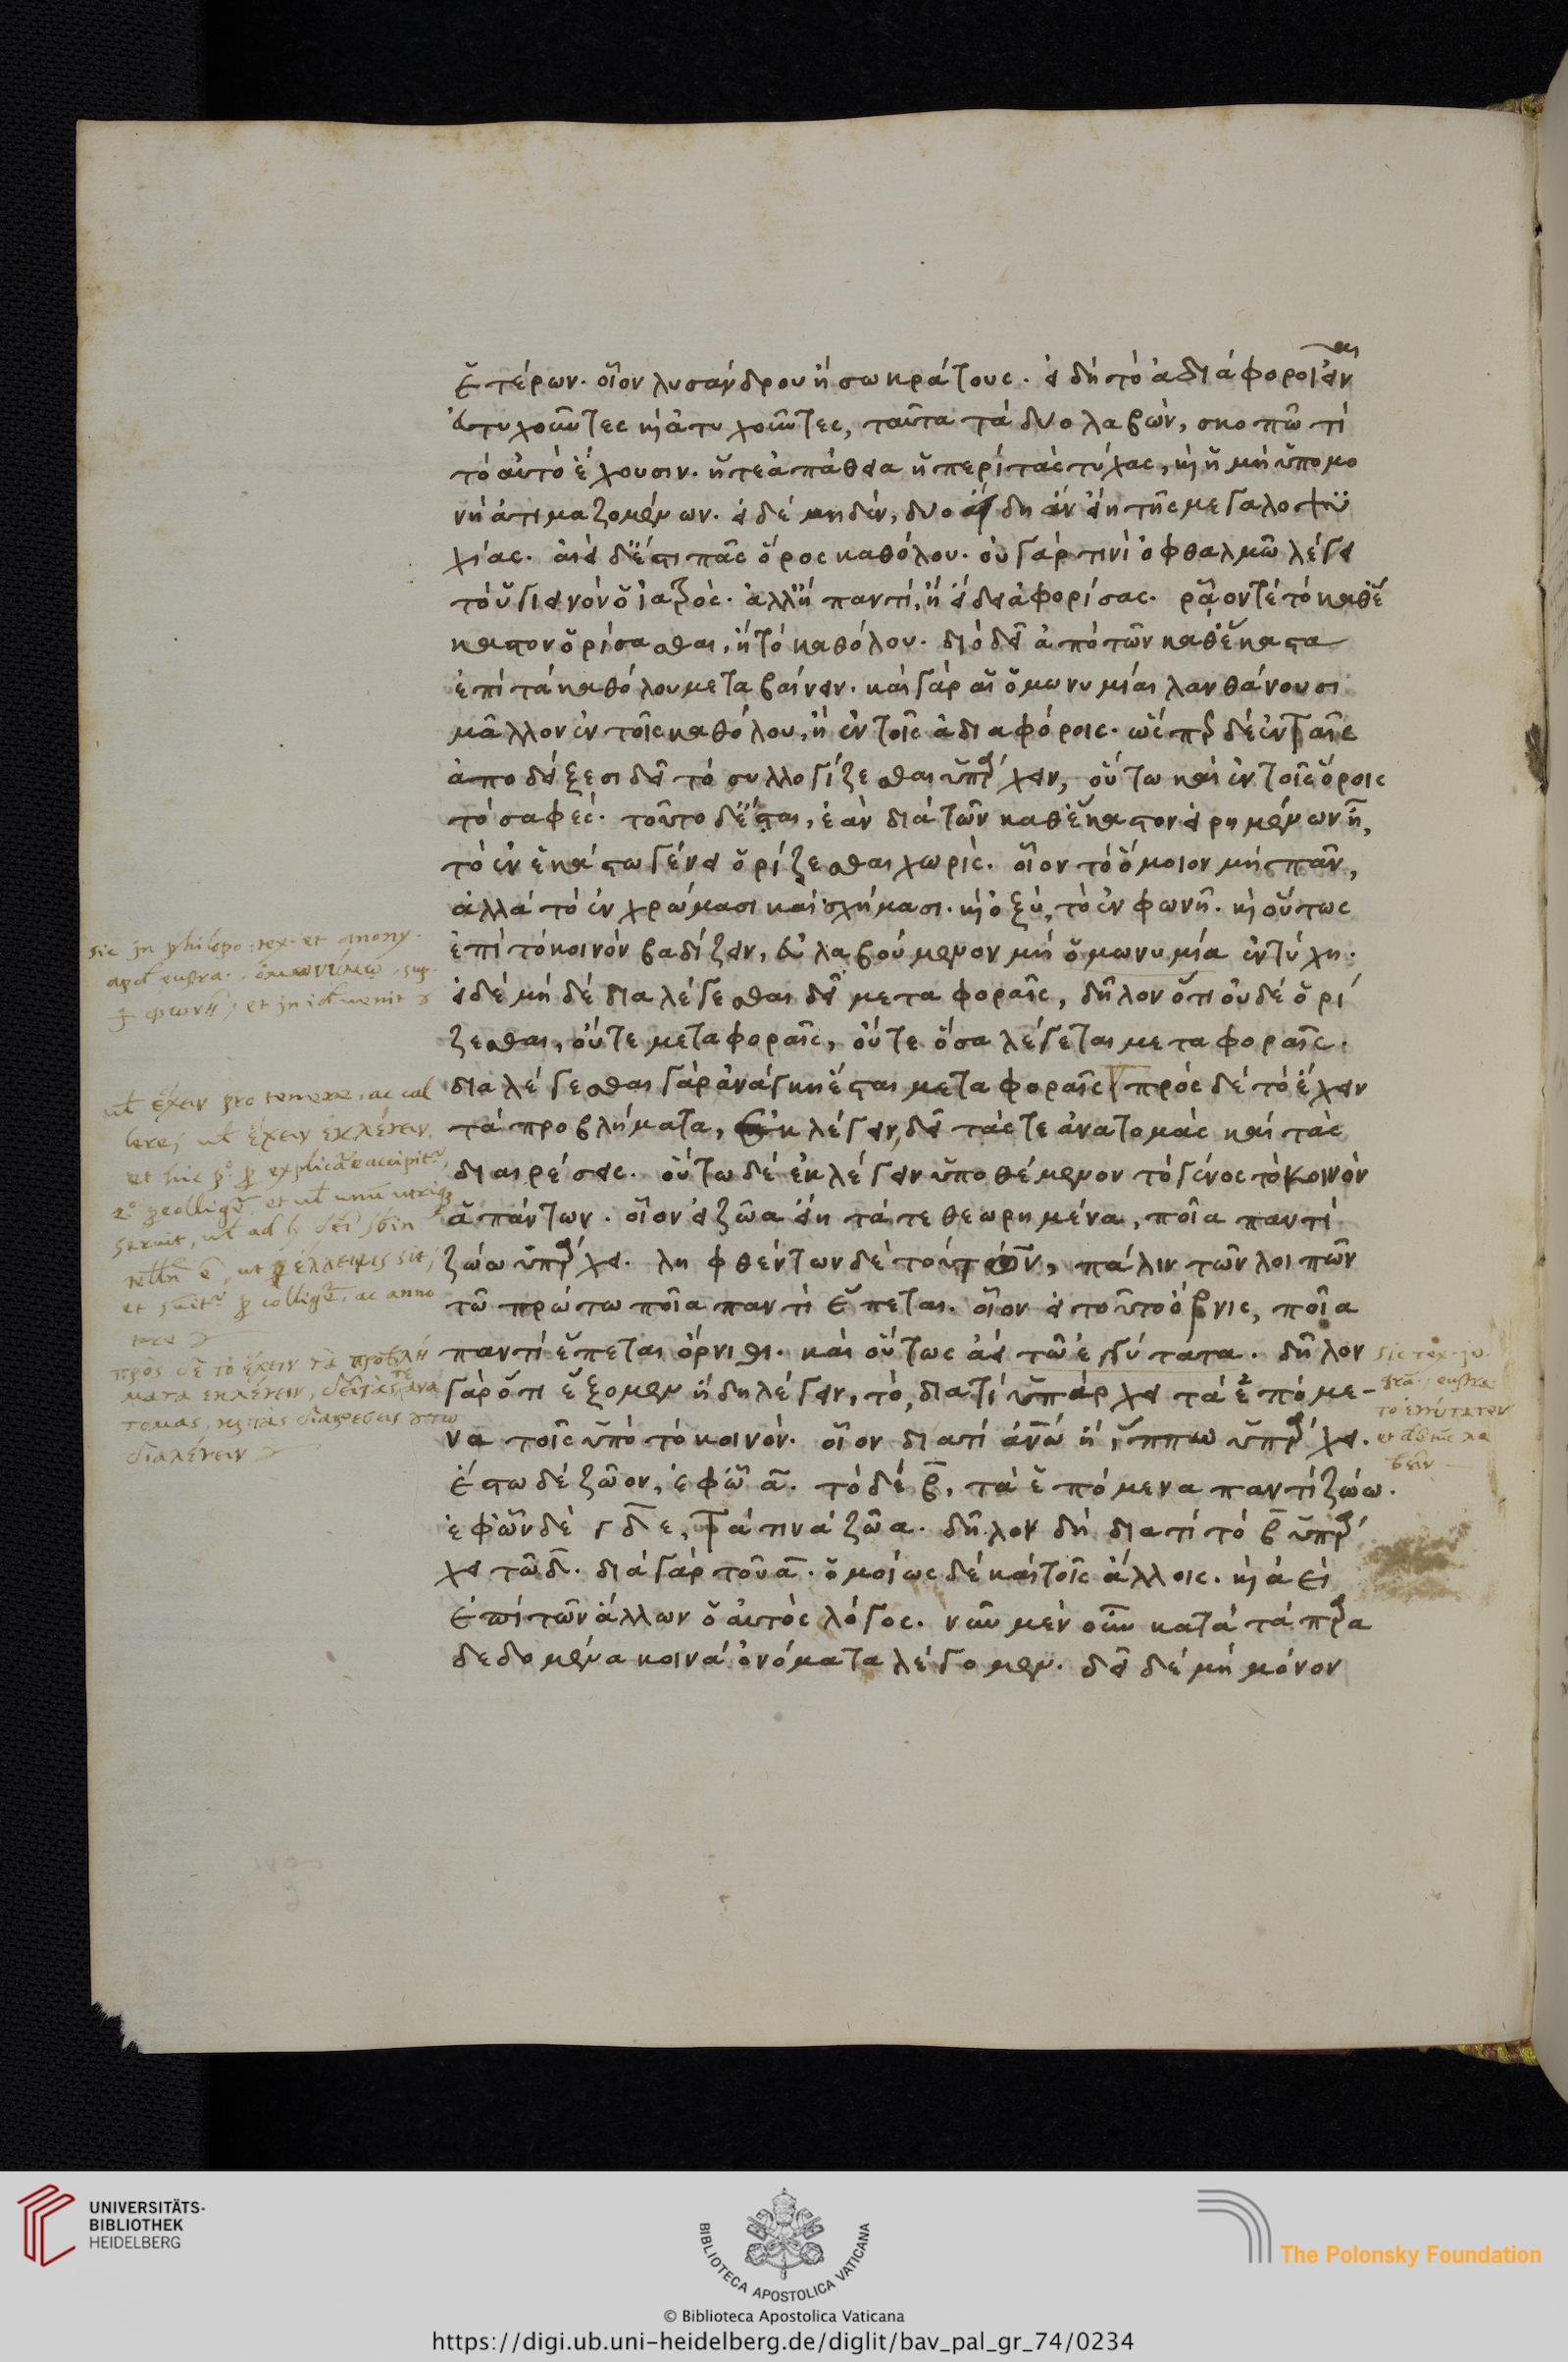 ἑτέρων. οἷον λυσάνδρου ἢ σωκράτους. εἰ δὴ τὸ ἀδιάφοροι εἶναι
εὐτυχοῦντες κ̀ ἀτυχοῦντες, ταῦτα τὰ δύο λαβὼν, σκοπῶ τί
τὸ αὐτὸ ἔχουσιν. ἥ τε ἀπάθεια ἡ περὶ τὰς τύχας, κ̀ ἡ μὴ ὑπομο
νὴ ἀτιμαζομένων. εἰ δὲ μηδὲν, δύο εἴδη ἂν εἴη τῆς μεγαλοψυ
χίας. αἰεὶ δ' ἐστι πᾶς ὅρος καθόλου. οὐ γάρ τινι ὀφθαλμῶ λέγει
τὸ ὑγιεινὸν ὁ ἰατρὸς. ἀλλ' ἢ παντὶ, ἢ εἴδει ἀφορίσας. ρᾷόν τε τὸ καθέ
καστον ὁρίσασθαι, ἢ τὸ καθόλου. διὸ δεῖ ἀπὸ τῶν καθέκαστα
ἐπὶ τὰ καθόλου μεταβαίνειν. καὶ γὰρ αἱ ὁμωνυμίαι λανθάνουσι
μᾶλλον ἐν τοῖς καθόλου, ἢ ἐν τοῖς ἀδιαφόροις. ὥσπερ δὲ ἐν ταῖς
ἀποδείξεσι δεῖ τὸ συλλογίζεσθαι ὑπάρχειν, οὕτω καὶ ἐν τοῖς ὅροις
τὸ σαφές. τοῦτο δ' ἔσται, ἐὰν διὰ τῶν καθέκαστον εἰρημένων ἢ,
τὸ ἐν ἑκάστω γένει ὁρίζεσθαι χωρὶς. οἷον τὸ ὅμοιον μὴ πᾶν,
ἀλλὰ τὸ ἐν χρώμασι καὶ σχήμασι. κ̀ ὀξὺ, τὸ ἐν φωνῆ. κ̀ οὕτως
ἐπὶ τὸ κοινὸν βαδίζειν, εὐλαβούμενον μὴ ὁμωνυμία ἐντύχη.
εἰ δὲ μὴ δὲ διαλέγεσθαι δεῖ μεταφοραῖς, δῆλον ὅτι οὐδὲ ὁρί
ζεσθαι, οὔτε μεταφοραῖς, οὔτε ὅσα λέγεται μεταφοραῖς.
διαλέγεσθαι γὰρ ἀνάγκη ἔσται μεταφοραῖς πρὸς δὲ τὸ ἔχειν
τὰ προβλήματα, ἐκλέγειν, δεῖ τάς τε ἀνατομὰς καὶ τὰς
διαιρέσεις. οὕτω δὲ ἐκλέγειν ὑποθέμενον τὸ γένος τὸ κοινὸν
ἁπάντων. οἷον εἰ ζῶα εἴη τά τε θεωρημένα, ποῖα παντὶ
ζώω ὑπάρχει. ληφθέντων δὲ τούτων, πάλιν τῶν λοιπῶν
τῶ πρώτω ποῖα παντὶ ἕπεται. οἷον εἰ τοῦτο ὄρνις, ποῖα
παντὶ ἕπεται ὄρνιθι. καὶ οὕτως ἀεὶ τῶ ἐγγύτατα. δῆλον
γὰρ ὅτι ἕξομεν ἤδη λέγειν, τὸ, διατί ὑπάρχει τὰ ἑπόμε-
να τοῖς ὑπὸ τὸ κοινὸν. οἷον διατί ἀνω ἢ ἵππω ὑπάρχει.
ἔστω δὲ ζῶον, ἐφ' ὧ α. τὸ δὲ β, τὰ ἑπόμενα παντὶ ζώω.
ἐφ' ὧν δὲ γ δ ε, τὰ τινὰ ζῶα. δῆλον δὴ διατί τὸ β ὑπάρ
χει τῶ δ. διὰ γὰρ τοῦ α. ὁμοίως δὲ καὶ τοῖς ἄλλοις. κ̀ ἀεὶ
ἐπὶ τῶν ἄλλων ὁ αὐτὸς λόγος. νῦν μὲν οὖν κατὰ τὰ παρα
δεδομένα κοινὰ ὀνόματα λέγομεν. δεῖ δὲ μὴ μόνον
sic in philopo. tex. et anony.
πρὸς δὲ τὸ ἔχειν τὰ προβλή
ματα ἐκλέγειν, δεῖ τάς τε ἀνα
τομας, κ̀ τὰς διαιρέσεις οὕτω
διαλέγειν
το ἐγγύτατον
UNIVERSITÄTS-
BIBLIOTHEK
HEIDELBERG
BIBLIOTECA APOSTOLICA VATICANA
The Polonsky Foundation
© Biblioteca Apostolica Vaticana
https://digi.ub.uni-heidelberg.de/diglit/bav_pal_gr_74/0234